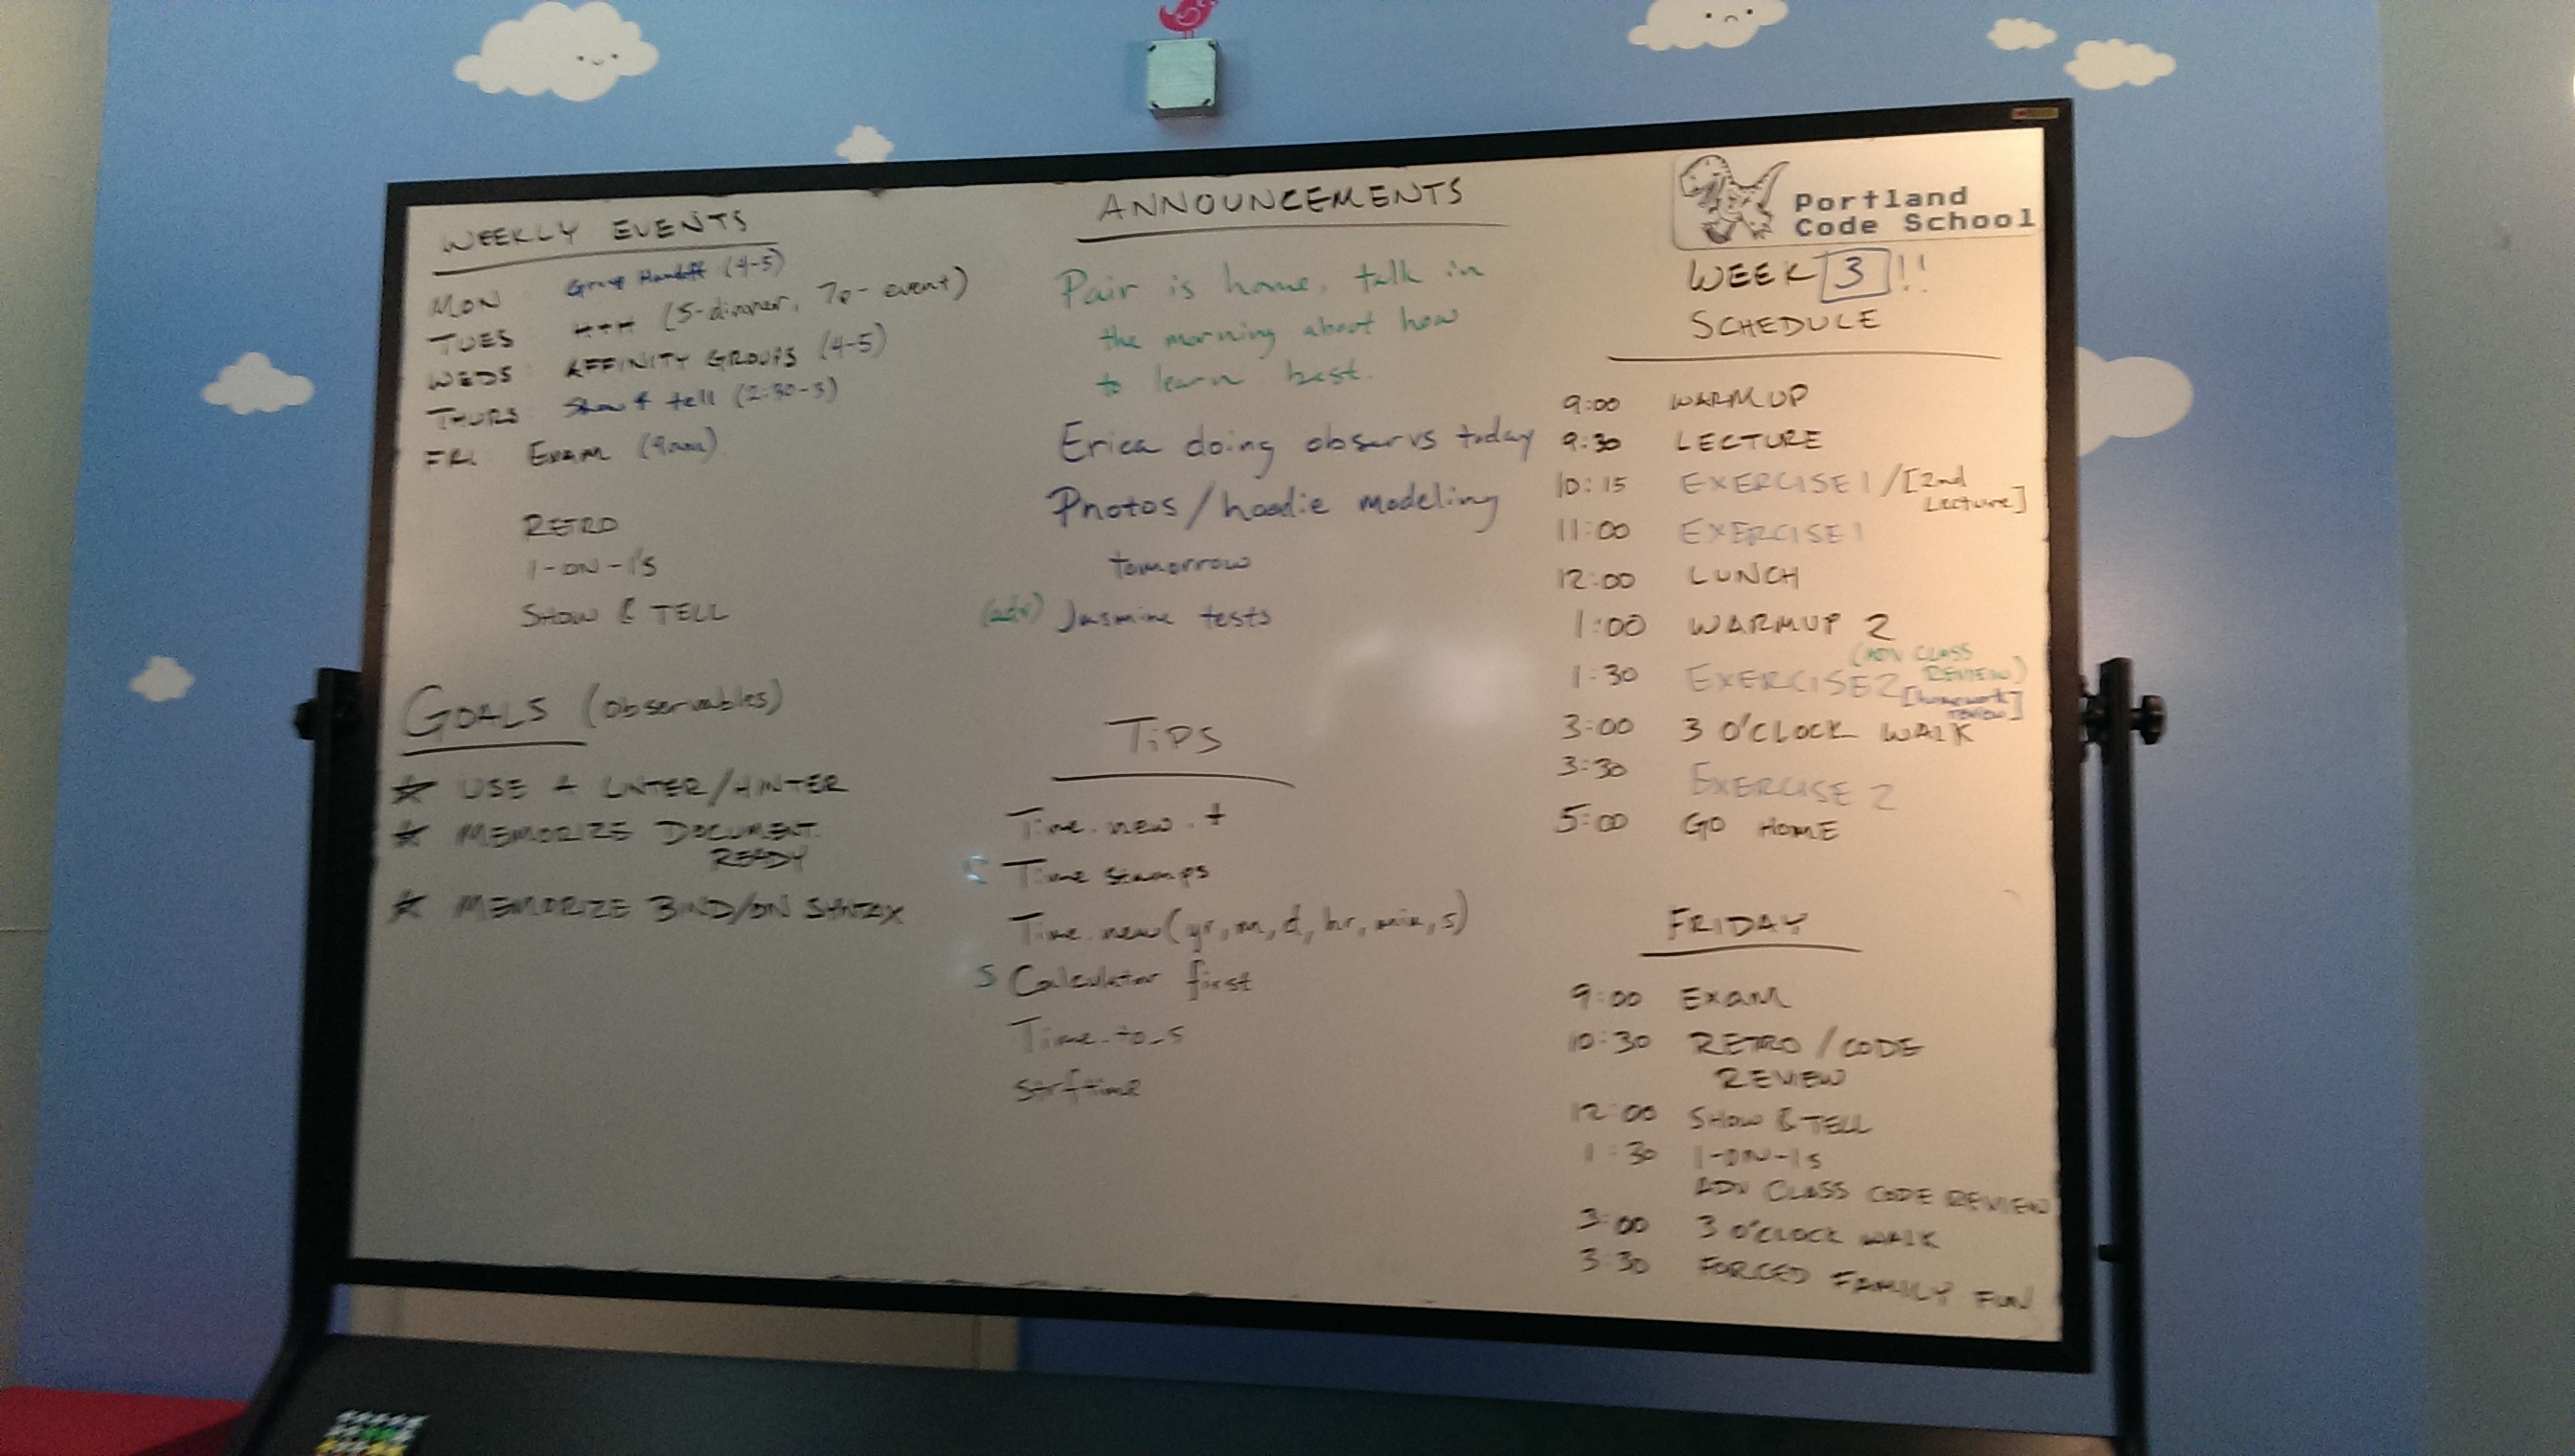 WEEKLY EVENTS
MON Group Handoff (4-5)
TUES HTH (5-dinner, 7p-event)
WEDS AFFINITY GROUPS (4-5)
THURS Show & tell (2:30-3)
FRI Exam (9am)
RETRO
1-ON-1'S
SHOW & TELL
GOALS (Observables)
★ USE A LINTER/HINTER
★ MEMORIZE DOCUMENT
READY
★ MEMORIZE BIND/ON SYNTAX
ANNOUNCEMENTS
Pair is home, talk in
the morning about how
to learn best.
Erica doing observs today
Photos/hoodie modeling
tomorrow
(adv) Jasmine tests
TIPS
Time.new.
Time stamps
Time.new(yr, m, d, hr, min, s)
S Calculator first
Time.to_s
strftime
Portland
Code School
WEEK 3!!
SCHEDULE
9:00 WARMUP
9:30 LECTURE
10:15 EXERCISE 1 / [2nd
Lecture]
11:00 EXERCISE 1
12:00 LUNCH
1:00 WARMUP 2
(ADV CLASS
1:30 EXERCISE 2 REVIEW)
[homework
review]
3:00 3 O'CLOCK WALK
3:30 EXERCISE 2
5:00 GO HOME
FRIDAY
9:00 EXAM
10:30 RETRO / CODE
REVIEW
12:00 SHOW & TELL
1:30 1-ON-1s
ADV CLASS CODE REVIEW
3:00 3 O'CLOCK WALK
3:30 FORCED FAMILY FUN